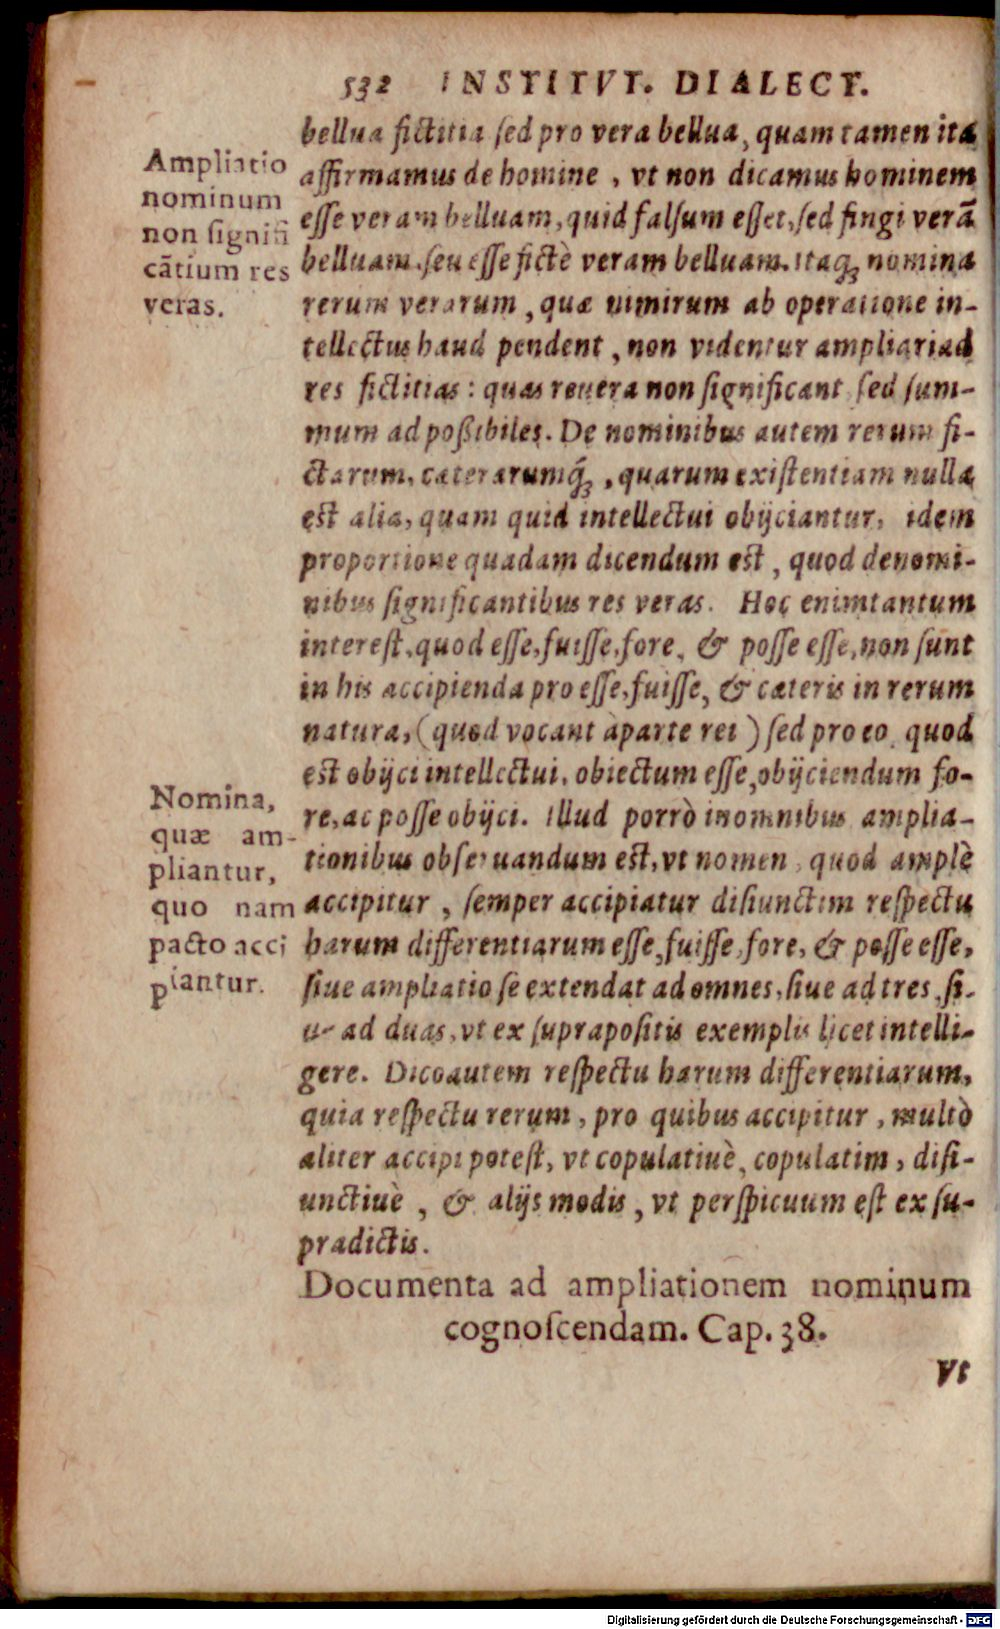 532 INSTITVT. DIALECT.
bellua fictitia ſed pro vera bellua, quam tamen ita
affirmamus de homine, vt non dicamus hominem
eſſe veram belluam, quid falſum eſſet, ſed fingi verā
belluam, ſeu eſſe fictè veram belluam. Itaq; nomina
rerum verarum, quæ nimirum ab operatione in-
tellectus haud pendent, non videntur ampliari ad
res fictitias: quas reuera non ſignificant, ſed ſum-
mum ad poßibiles. De nominibus autem rerum fi-
ctarum, cæterarumq́;, quarum exiſtentiam nulla
est alia, quam quid intellectui obijciantur, idem
proportione quadam dicendum est, quod de nomi-
nibus ſignificantibus res veras. Hoc enim tantum
intereſt, quod eſſe, fuiſſe, fore, & poſſe eſſe, non ſunt
in his accipienda pro eſſe, fuiſſe, & cæteris in rerum
natura, (quod vocant à parte rei) ſed pro eo, quod
est obijci intellectui, obiectum eſſe, obijciendum fo-
re, ac poſſe obijci. Illud porrò in omnibus amplia-
tionibus obſeruandum est, vt nomen, quod amplè
accipitur, ſemper accipiatur diſiunctim reſpectu
harum differentiarum eſſe, fuiſſe, fore, & poſſe eſſe,
ſiue ampliatio ſe extendat ad omnes, ſiue ad tres, ſi-
ue ad duas, vt ex ſuprapoſitis exemplis licet intelli-
gere. Dico autem reſpectu harum differentiarum,
quia reſpectu rerum, pro quibus accipitur, multò
aliter accipi poteſt, vt copulatiuè, copulatim, diſi-
unctiuè, & alijs modis, vt perſpicuum eſt ex ſu-
pradictis.
Ampliatio
nominum
non ſignifi
cātium res
veras.
Nomina,
quæ am-
pliantur,
quo nam
pacto acci
piantur.
Documenta ad ampliationem nominum
cognoſcendam. Cap. 38.
Vt
Digitalisierung gefördert durch die Deutsche Forschungsgemeinschaft - DFG